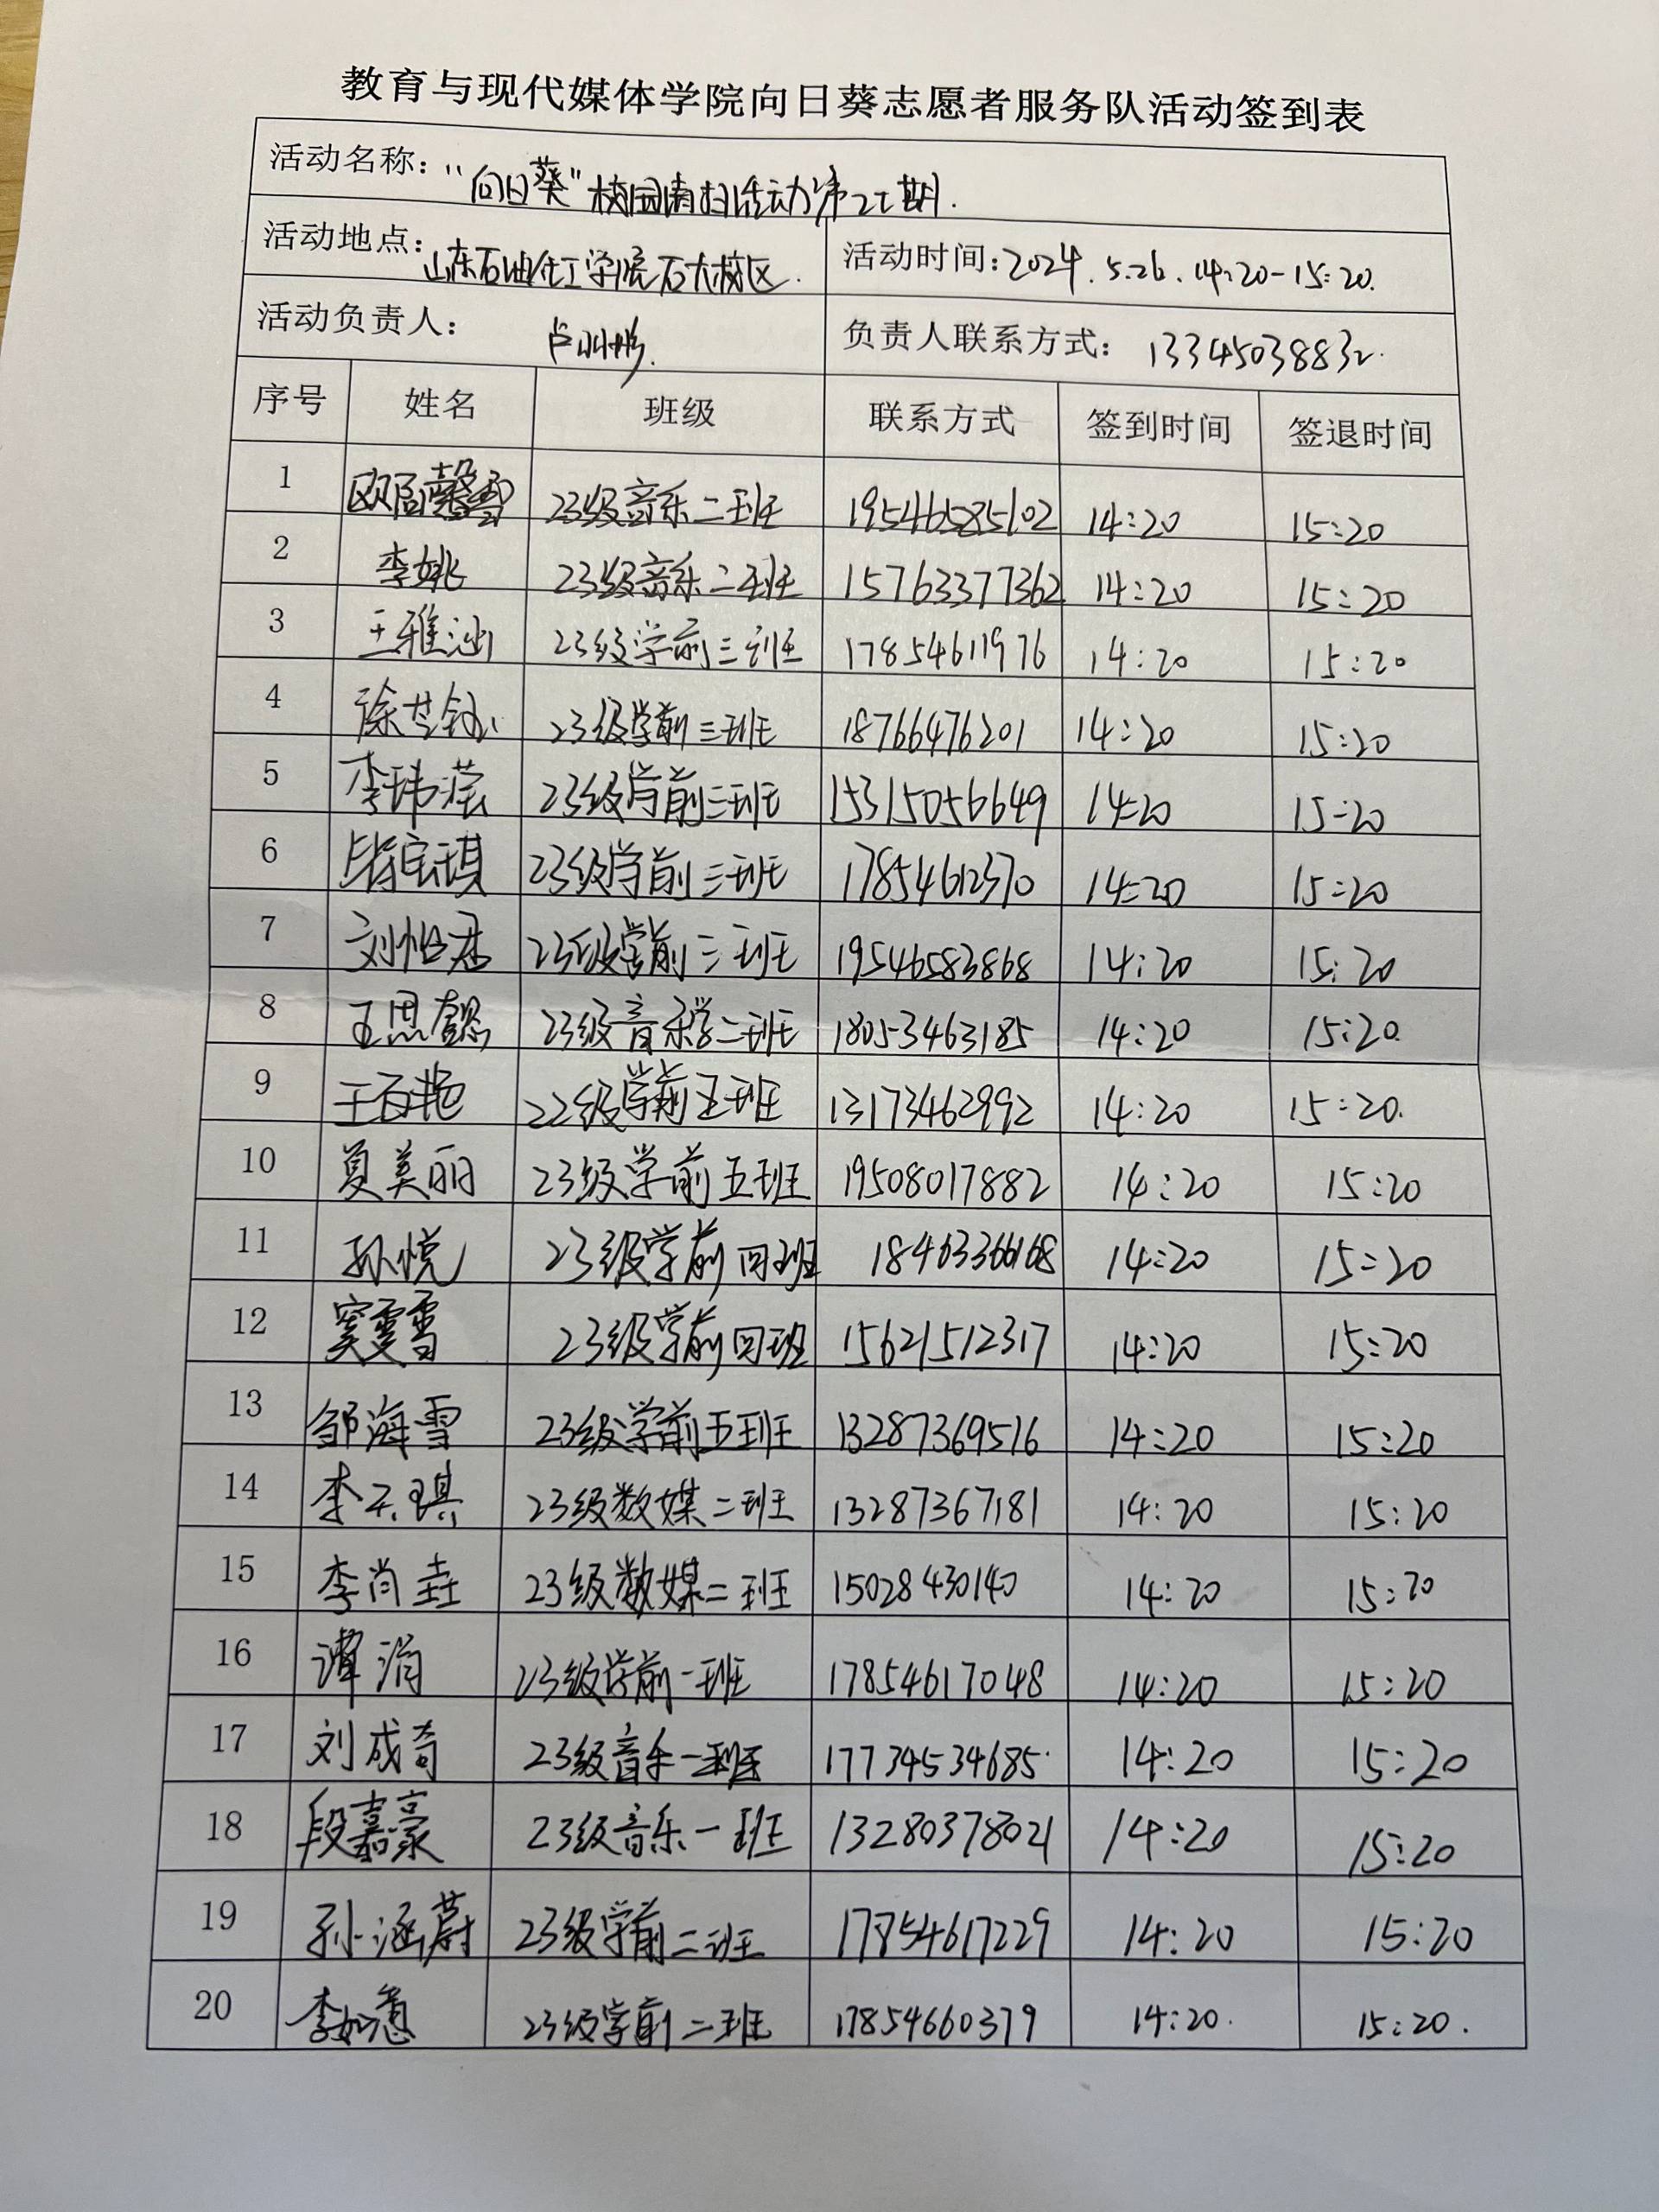 教育与现代媒体学院向日葵志愿者服务队活动签到表
活动名称："向日葵"校园清扫活动第二七期.
活动地点：山东石油化工学院石大校区. 活动时间：2024.5.26.14:20-15:20.
活动负责人： 负责人联系方式：13345038832.
序号 姓名 班级 联系方式 签到时间 签退时间
1 欧阳馨雪 23级音乐二班 19546585102 14:20 15:20
2 李姚 23级音乐二班 15763377362 14:20 15:20
3 王雅涵 23级学前三班 17854611976 14:20 15:20
4 徐芸 23级学前三班 18766476201 14:20 15:20
5 李玮滢 23级学前三班 15315056649 14:20 15:20
6 毕宝琪 23级学前三班 17854612370 14:20 15:20
7 刘怡君 23级学前三班 19546583868 14:20 15:20
8 王思懿 23级音乐学二班 18053463185 14:20 15:20.
9 王百艳 22级学前五班 13173462992 14:20 15:20.
10 夏美丽 23级学前五班 19508017882 14:20 15:20
11 孙悦 23级学前四班 18463366168 14:20 15:20
12 窦雯雪 23级学前四班 15621512317 14:20 15:20
13 邹海雪 23级学前五班 13287369516 14:20 15:20
14 李天琪 23级数媒二班 13287367181 14:20 15:20
15 李尚垚 23级数媒二班 15028430140 14:20 15:20
16 谭涓 23级学前一班 17854617048 14:20 15:20
17 刘成奇 23级音乐一班 17734534685. 14:20 15:20
18 段嘉豪 23级音乐一班 13280378021 14:20 15:20
19 孙涵蔚 23级学前二班 17854617229 14:20 15:20
20 李如意 23级学前二班 17854660379 14:20. 15:20.